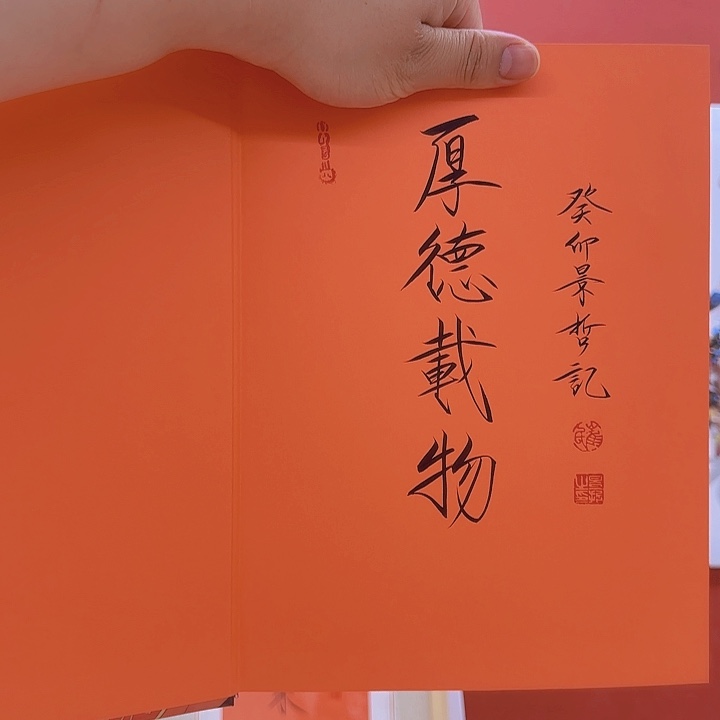 厚德載物
癸卯景哲記